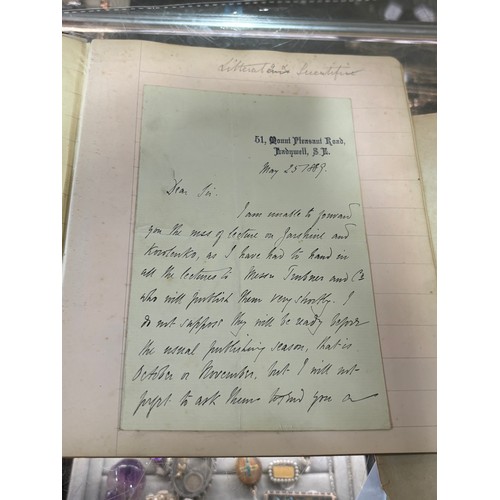 Litterateurs Scientific
51, Mount Pleasant Road,
Ladywell, S.E.
May 25 1889.
Dear Sir.
I am unable to forward
you the mss of lecture on Garshine and
Korolenko, as I have had to hand in
all the lectures to Messrs Trubner and Co
who will publish them very shortly. I
do not suppose they will be ready before
the usual publishing season, that is
October or November, but I will not
forget to ask them to send you a